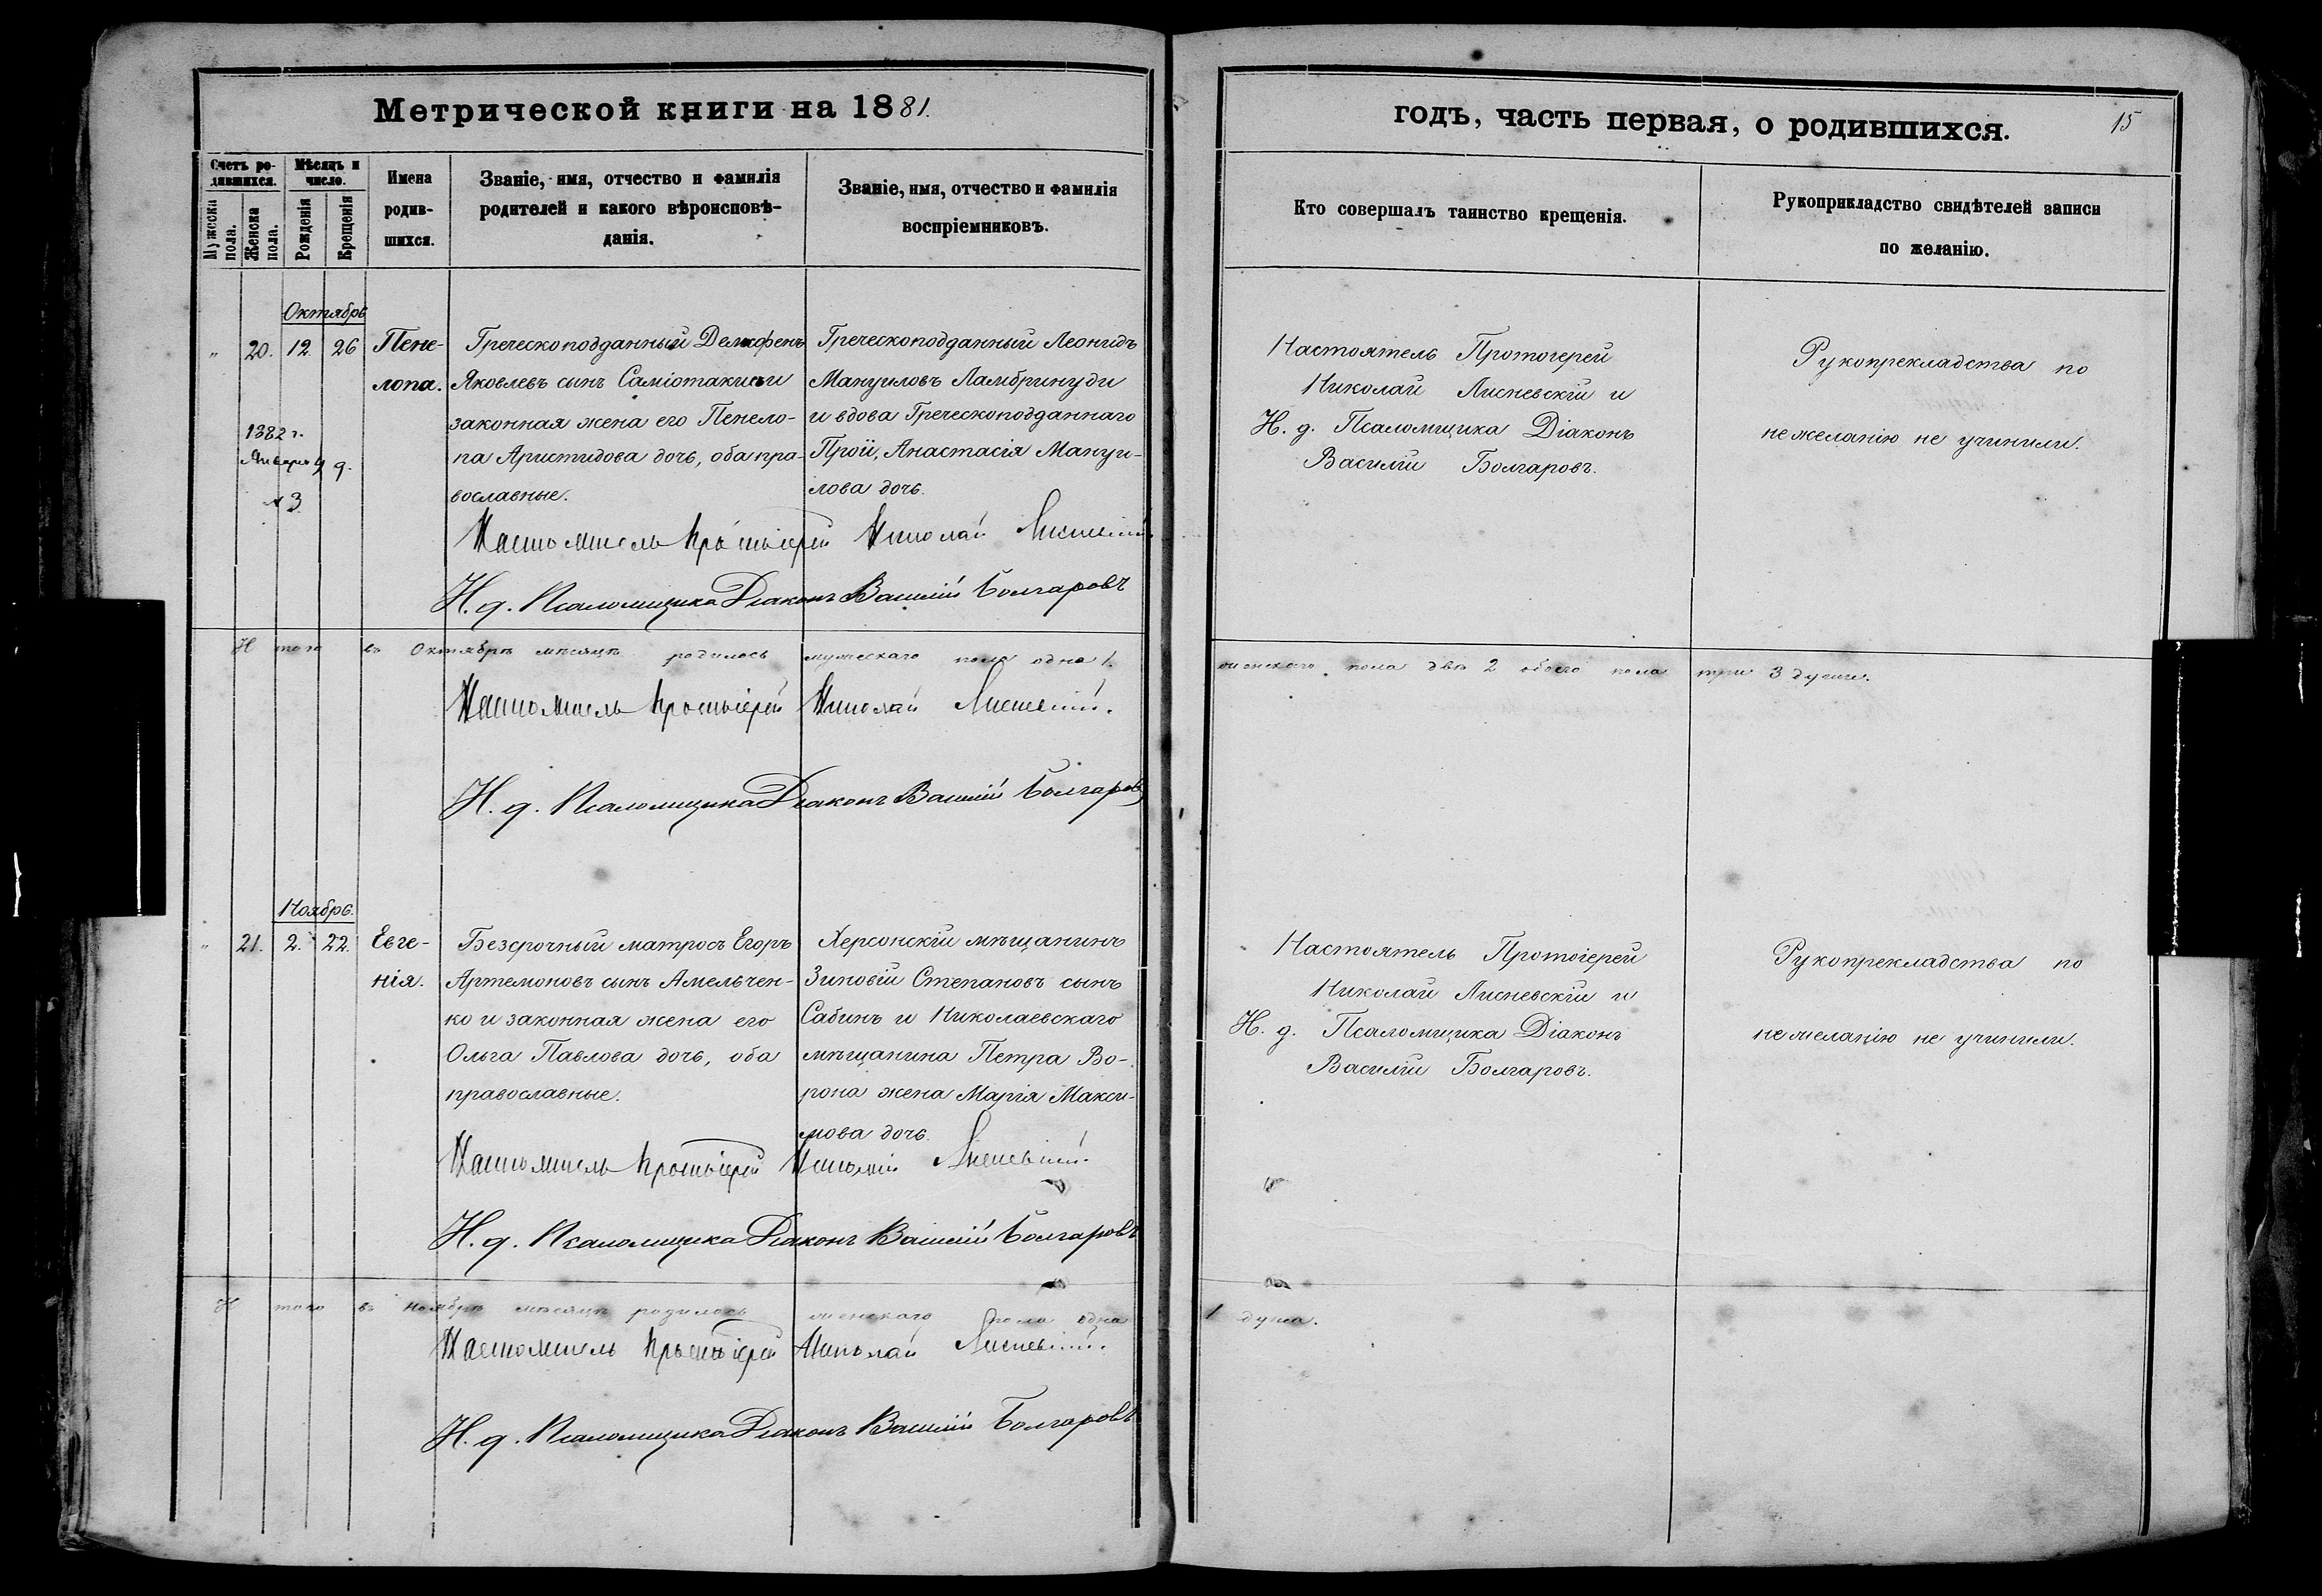 Метрической книги на 1881.
Счетъ ро-
дившихся.
Мѣсяцъ и
число.
Мужеска
пола.
Женска
пола.
Рожденія
Крещенія
Имена
родив-
шихся.
Званіе, имя, отчество и фамилія
родителей и какого вѣроисповѣ-
данія.
Званіе, имя, отчество и фамилія
воспріемниковъ.
Октябрь
" 20. 12. 26
Пене-
лопа.
1882 г.
Января 9 д.
№ 3
Греческоподданный
Яковлевъ сынъ и
законная жена его Пенело-
па Аристидова дочь, оба пра-
вославные.
Греческоподданный Леонидъ
Мануиловъ Ламбринуди
и вдова Греческоподданнаго
Прои, Анастасія Мануи-
лова дочь.
Настоятель Протоіерей Николай Лисневскій
Н. д. Псаломщика Діаконъ Василій Болгаровъ
Итого въ Октябрѣ мѣсяцѣ родилось мужескаго пола одна 1.
Настоятель Протоіерей Николай Лисневскій.
Н. д. Псаломщика Діаконъ Василій Болгаровъ
Ноябрь.
" 21. 2. 22.
Евге-
нія.
Безсрочный матросъ Егоръ
Артемоновъ сынъ Амельчен-
ко и законная жена его
Ольга Павлова дочь, оба
православные.
Херсонскій мѣщанинъ
Зиновій Степановъ сынъ
Сабинъ и Николаевскаго
мѣщанина Петра Во-
рона жена Марія Макси-
мова дочь.
Настоятель Протоіерей Николай Лисневскій.
Н. д. Псаломщика Діаконъ Василій Болгаровъ
Итого въ Ноябрѣ мѣсяцѣ родилось женскаго пола одна
Настоятель Протоіерей Николай Лисневскій.
Н. д. Псаломщика Діаконъ Василій Болгаровъ
годъ, часть первая, о родившихся.
15
Кто совершалъ таинство крещенія.
Рукоприкладство свидѣтелей записи
по желанію.
Настоятель Протоіерей
Николай Лисневскій и
Н. д. Псаломщика Діаконъ
Василій Болгаровъ.
Рукопрекладства по
нежеланію не учинили.
женскаго пола двѣ 2 обоего пола три 3 души.
Настоятель Протоіерей
Николай Лисневскій и
Н. д. Псаломщика Діаконъ
Василій Болгаровъ.
Рукопрекладства по
нежеланію не учинили.
1 душа.